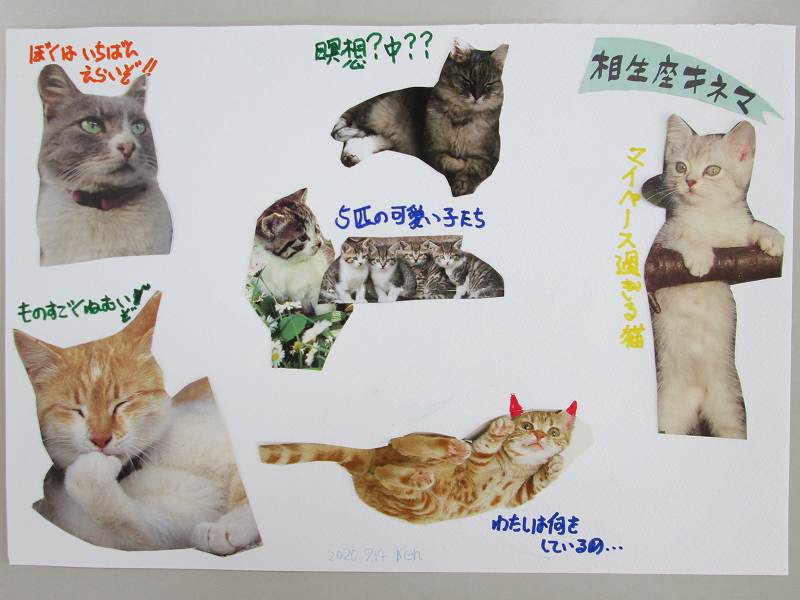 ぼくは いちばん
えらいぞ!!
瞑想?中??
相生座キネマ
マイペース過ぎる猫
5匹の可愛い子たち
ものすごくねむいぞ
わたしは何を
しているの...
2020.7.14 Ken